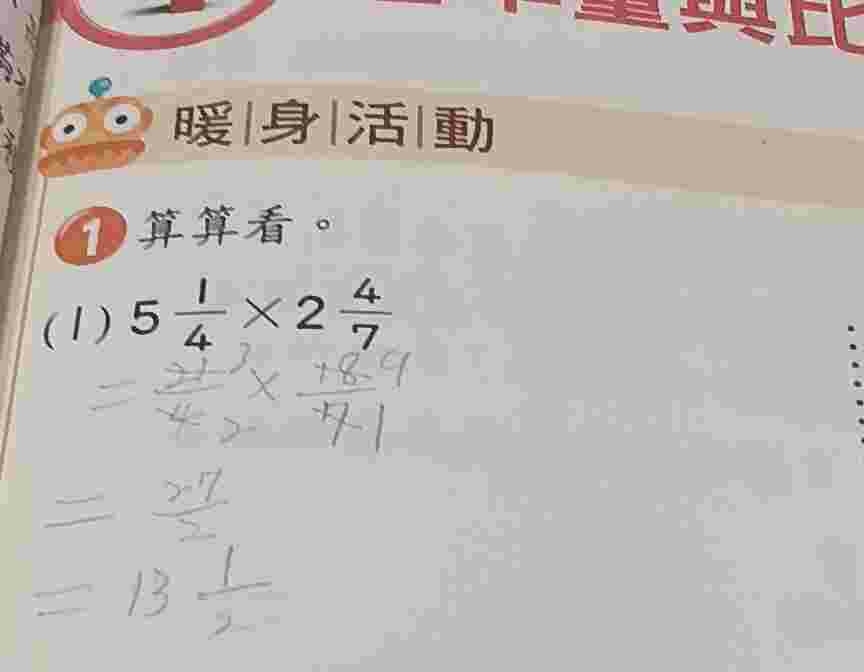 量與比
暖|身|活|動
1 算算看。
(1) 5 1/4 × 2 4/7
= 21/4 3 2 × 18/7 9 1
= 27/2
= 13 1/2